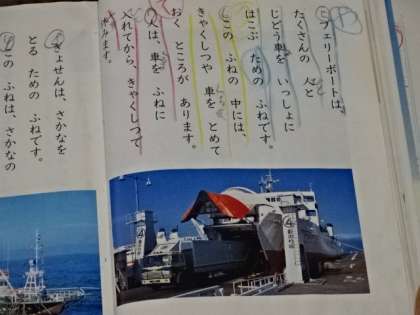 フェリーボートは、
たくさんの 人と
じどう車を いっしょに
はこぶ ための ふねです。
この ふねの 中には、
きゃくしつや 車を とめて
おく ところが あります。
人は、車を ふねに
入れてから、きゃくしつで
休みます。
ぎょせんは、さかなを
とる ための ふねです。
この ふねは、さかなの